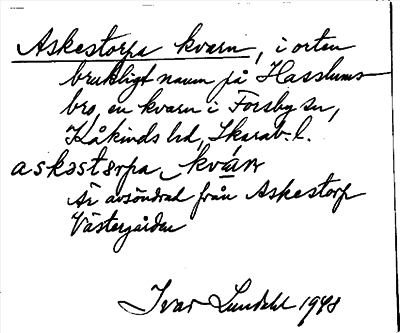 Askestorpa kvarn, i orten
brukligt namn på Hasslums-
bro, en kvarn i Forsby sn,
Kåkinds hd, Skarab. l.
askəstərpa kvárn
Är avsöndrad från Askestorp
Västergården
Ivar Lundahl 1948